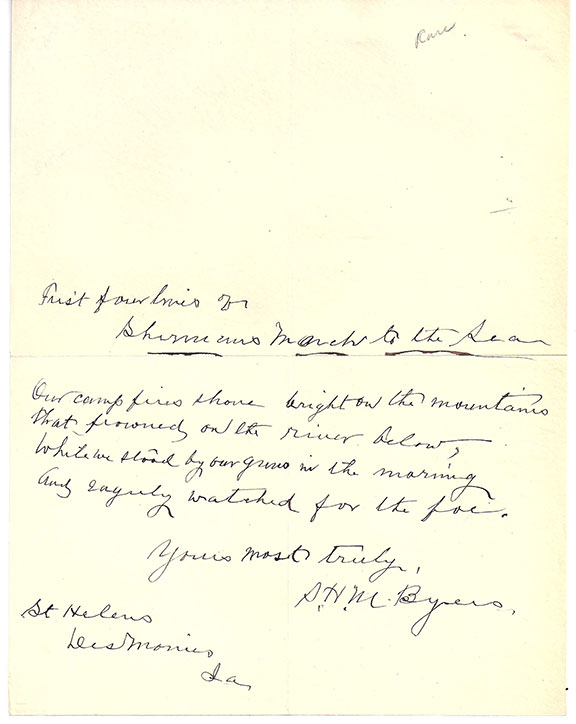 Rare
First four lines of
Shermans March to the Sea
Our camp fires shone bright on the mountains
That frowned on the river below,
While we stood by our guns in the morning
And eagerly watched for the foe.
Yours most truly,
S.H.M. Byers,
St Helens
Des Moines
Ia,